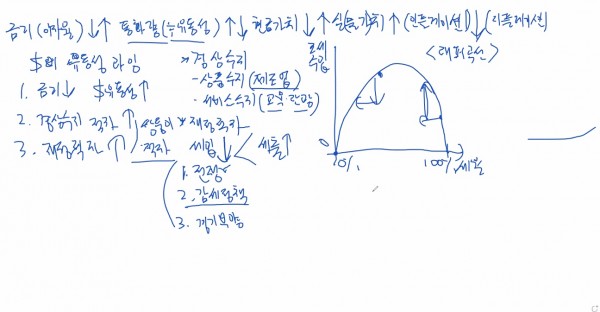 금리(이자율) ↓↑ 통화량(유동성) ↑↓ 현금가치 ↓↑ 실물가치 ↑(인플레이션) ↓(디플레이션)
$의 유동성 타임
* 경상수지
조세
수입
<래퍼곡선>
1. 금리↓ $유동성↑
- 상품수지(제조업)
- 서비스수지(교육, 관광)
2. 경상수지 적자↑
쌍둥이
적자
* 재정흑자
3. 재정적자↑
세입↓
세출↑
1. 전쟁
2. 감세정책
3. 경기부양
0
0%
100%
세율